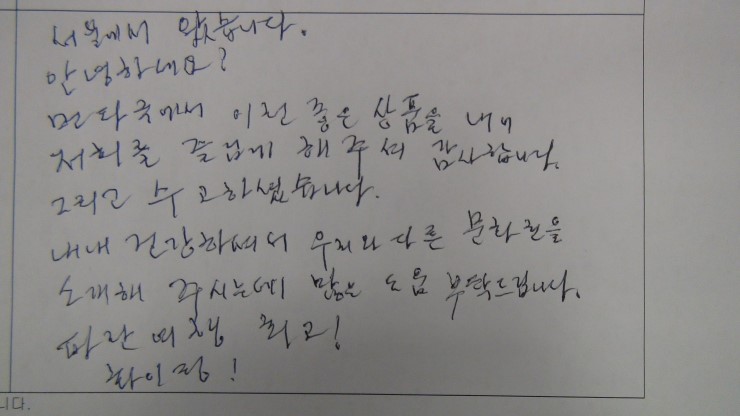 서울에서 왔습니다.
안녕하세요?
먼 타국에서 이런 좋은 상품을 내어
저희를 즐겁게 해 주셔 감사합니다.
그리고 수고하셨습니다.
내내 건강하셔서 우리와 다른 문화권을
소개해 주시는데 많은 도움 부탁드립니다.
파란여행 최고!
화이팅!
니다.